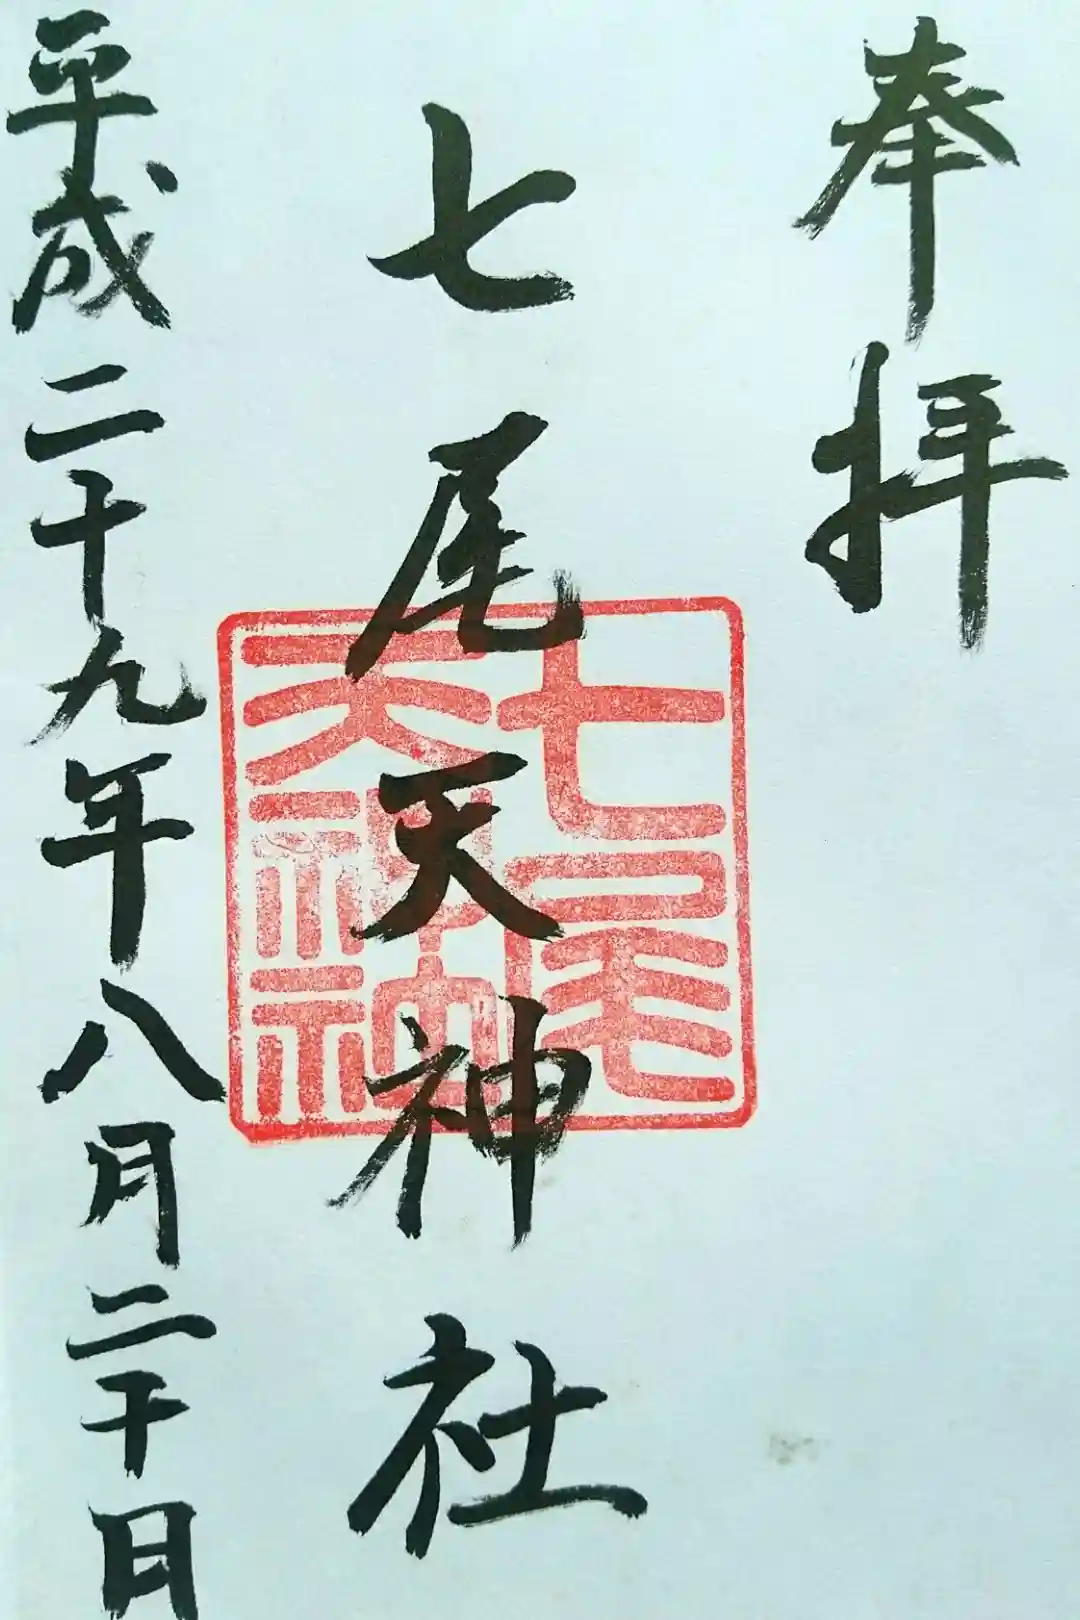 奉拝
七尾天神社
七尾
天神社
平成二十九年八月二十日